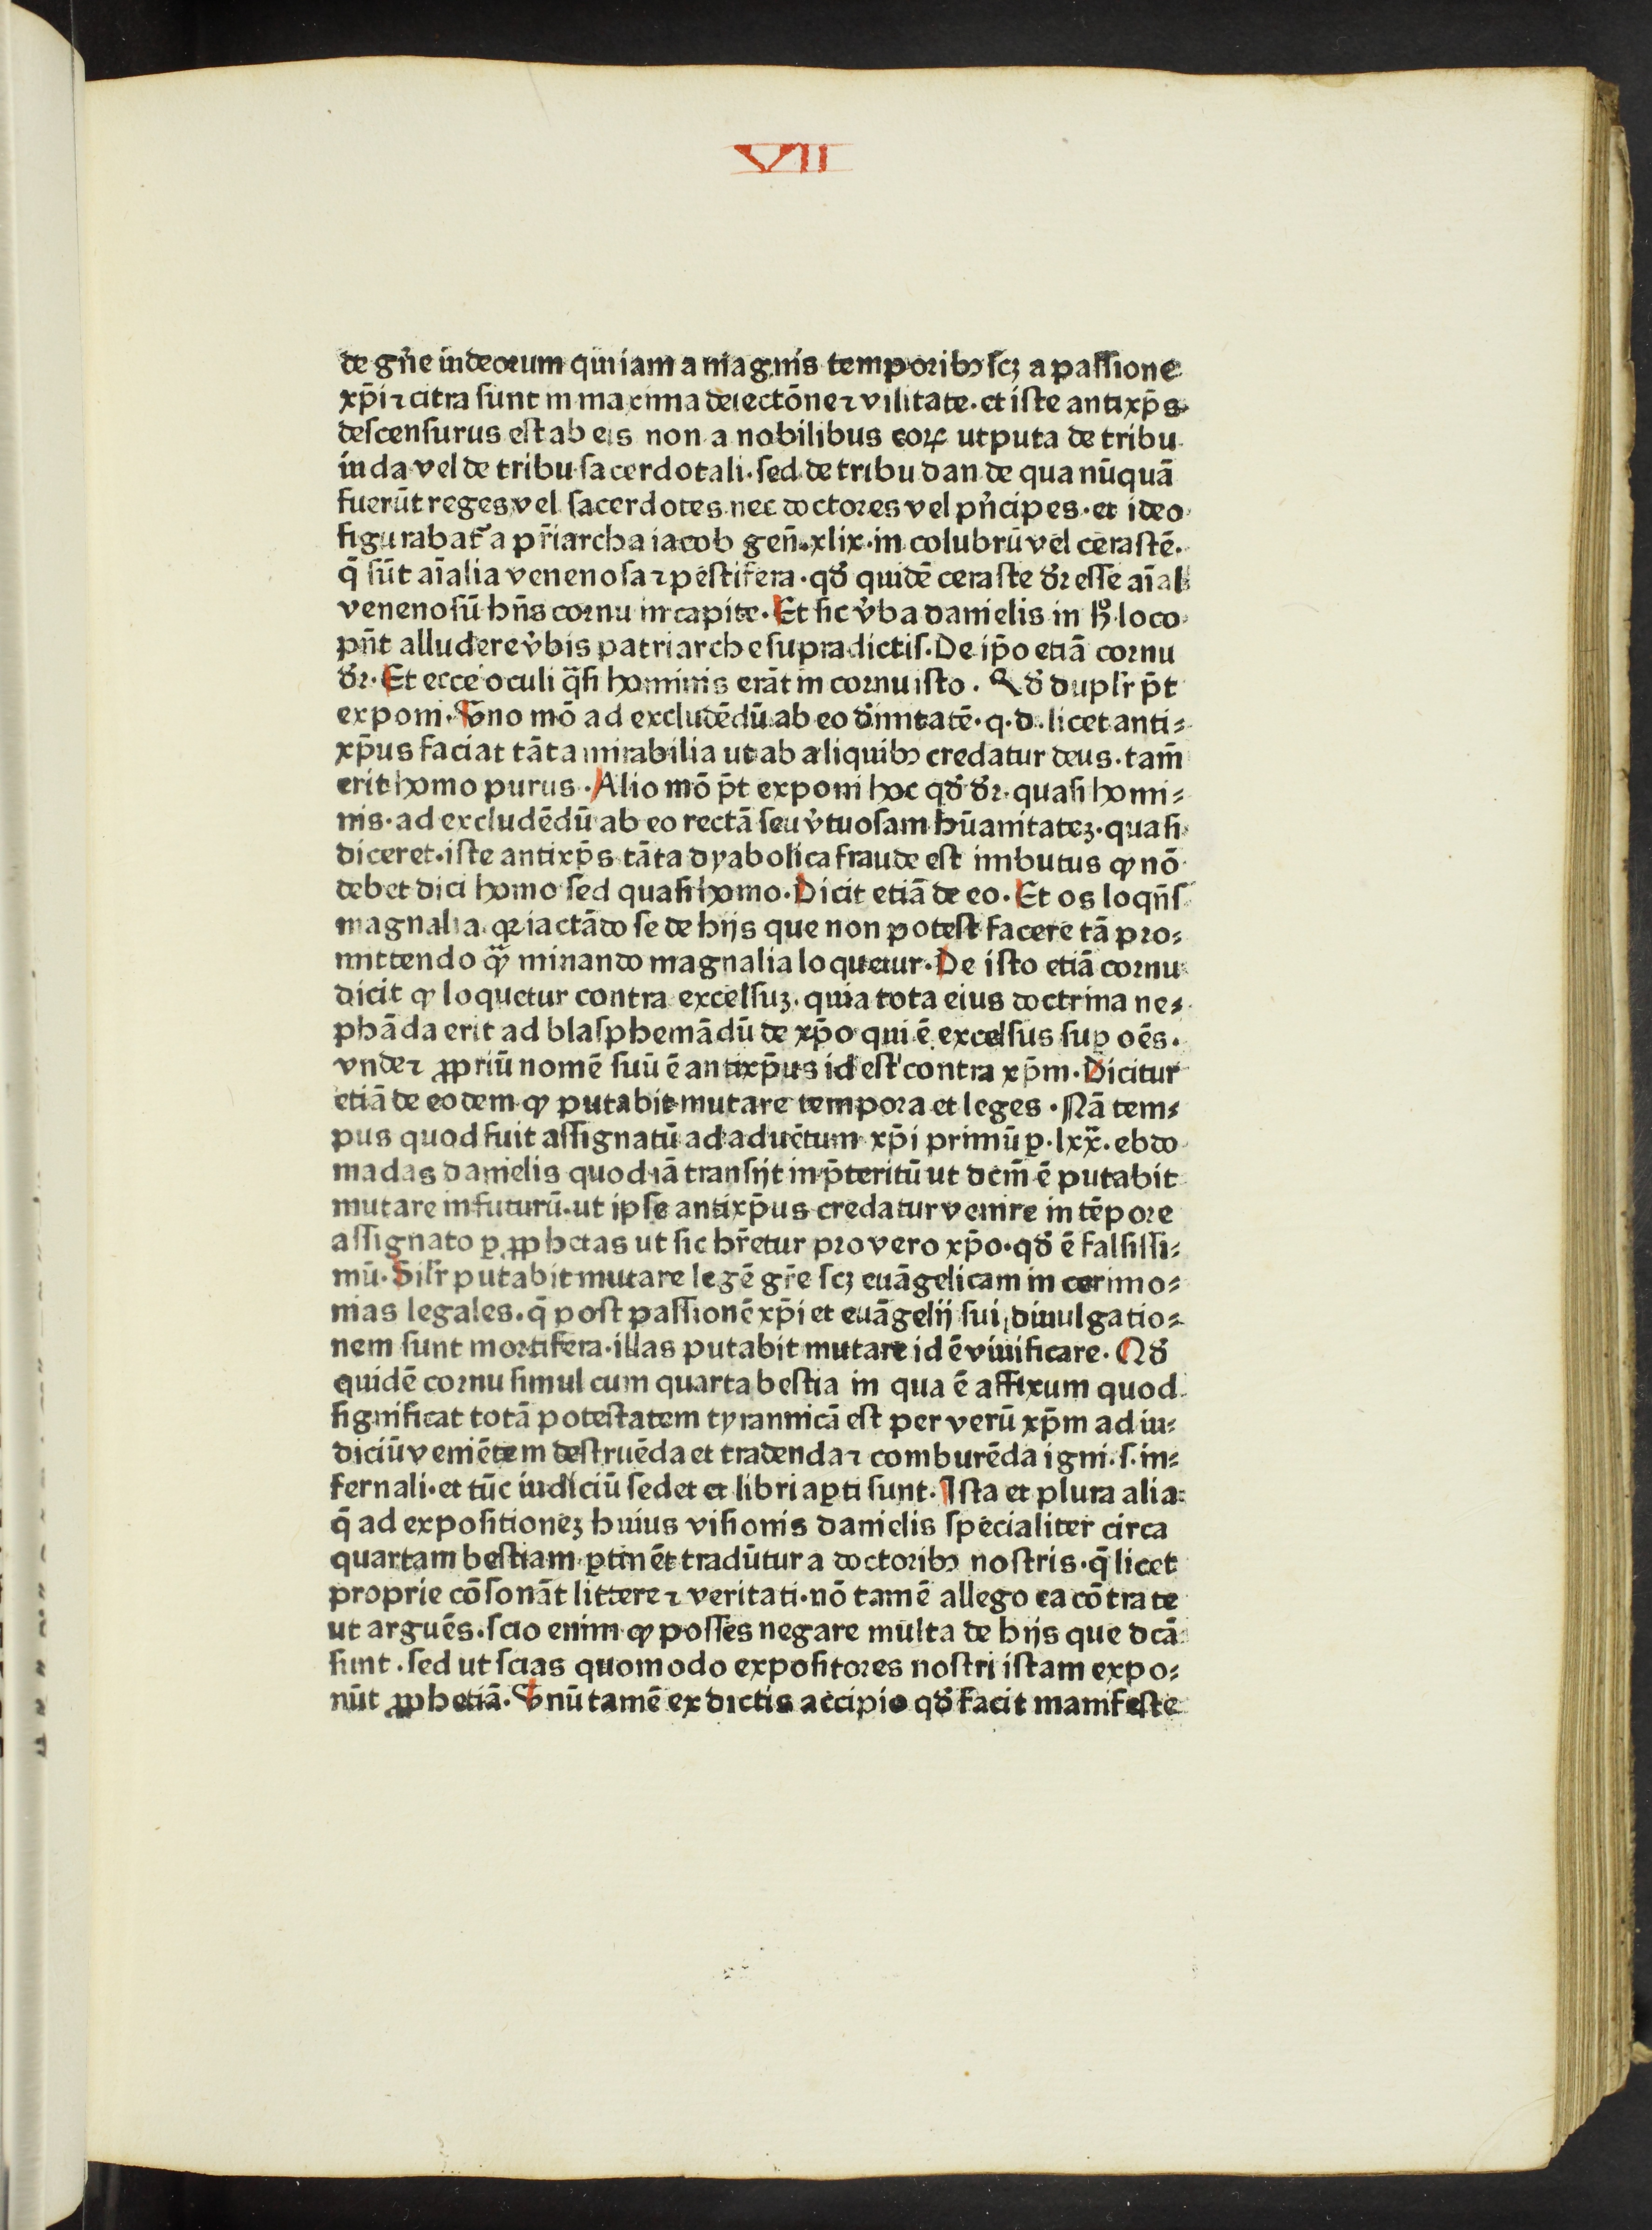 VII
de gn̄e iudeorum qui iam a magnis temporibꝰ ſcꝫ a paſſione
xp̄i ⁊ citra ſunt in maxima deiectōne ⁊ vilitate · et iſte antixp̄s
deſcenſurus eſt ab eis non a nobilibus eoꝝ utputa de tribu
iuda vel de tribu ſacerdotali · ſed de tribu dan de qua nūquā
fuerūt reges vel ſacerdotes nec doctores vel pn̄cipes · et ideo
figurabat᷑ a pr̄iarcha iacob gen̄ · xlix · in colubrū vel ceraſtē ·
q̄ ſūt aīalia venenoſa ⁊ peſtifera · qď quidē ceraſte dr̄ eſſe aīal
venenoſū hn̄s cornu in capite · Et ſic v̓ba danielis in h̓ loco
pn̄t alludere v̓bis patriarche ſupradictiſ · De ip̄o etiā cornu
dr̄ · Et ecce oculi q̄ſi hominis erāt in cornu iſto · Qď dupl̓r p̄t
exponi · Vno mō ad excludēdū ab eo diuinitatē · q · d · licet anti⸗
xp̄us faciat tāta mirabilia ut ab aliquibꝰ credatur deus · tam̄
erit homo purus · Alio mō p̄t exponi hoc qď dr̄ · quaſi homi⸗
nis · ad excludēdū ab eo rectā ſeu v̓tuoſam hūanitateꝫ · quaſi
diceret · iſte antixp̄s tāta dyabolica fraude eſt imbutus ꝙ nō
debet dici homo ſed quaſi homo · Dicit etiā de eo · Et os loqn̄ſ
magnalia · qꝛ iactādo ſe de hijs que non poteſt facere tā pro⸗
mittendo qᷓꝫ minando magnalia loquetur · De iſto etiā cornu
dicit ꝙ loquetur contra excelſuꝫ · quia tota eius doctrina ne⸗
phāda erit ad blaſphemādū de xp̄o qui ē excelſus ſuꝑ oēs ·
vnde ⁊ ꝓpriū nomē ſuū ē antixp̄us id eſt contra xp̄m · Dicitur
etiā de eodem ꝙ putabit mutare tempora et leges · Nā tem⸗
pus quod fuit aſſignatū ad aduētum xp̄i primū ꝑ · lxx̄ · ebdo
madas danielis quod iā tranſijt in p̄teritū ut dcm̄ ē putabit
mutare in futurū · ut ipſe antixp̄us credatur venire in tēpore
aſſignato ꝑ ꝓphetas ut ſic hr̄etur pro vero xp̄o · qď ē falſiſſi⸗
mū · Sil̓r putabit mutare legē gr̄e ſcꝫ euāgelicam in cerimo⸗
nias legales · q̄ poſt paſſionē xp̄i et euāgelij ſui diuulgatio⸗
nem ſunt mortifera · illas putabit mutare id ē viuificare · Qď
quidē cornu ſimul cum quarta beſtia in qua ē affixum quod
ſignificat totā poteſtatem tyrannicā eſt per verū xp̄m ad iu⸗
diciū veniētem deſtruēda et tradenda ⁊ comburēda igni · ſ · in⸗
fernali · et tūc iudiciū ſedet et libri aꝑti ſunt · Iſta et plura alia
q̄ ad expoſitioneꝫ huius viſionis danielis ſpecialiter circa
quartam beſtiam ꝑtinēt tradūtur a doctoribꝰ noſtris · q̄ licet
proprie cōſonāt littere ⁊ veritati · nō tamē allego ea cōtra te
ut arguēs · ſcio enim ꝙ poſſes negare multa de hijs que dcā
ſunt · ſed ut ſcias quomodo expoſitores noſtri iſtam expo⸗
nūt ꝓphetiā · Vnū tamē ex dictis accipio qď facit manifeſte